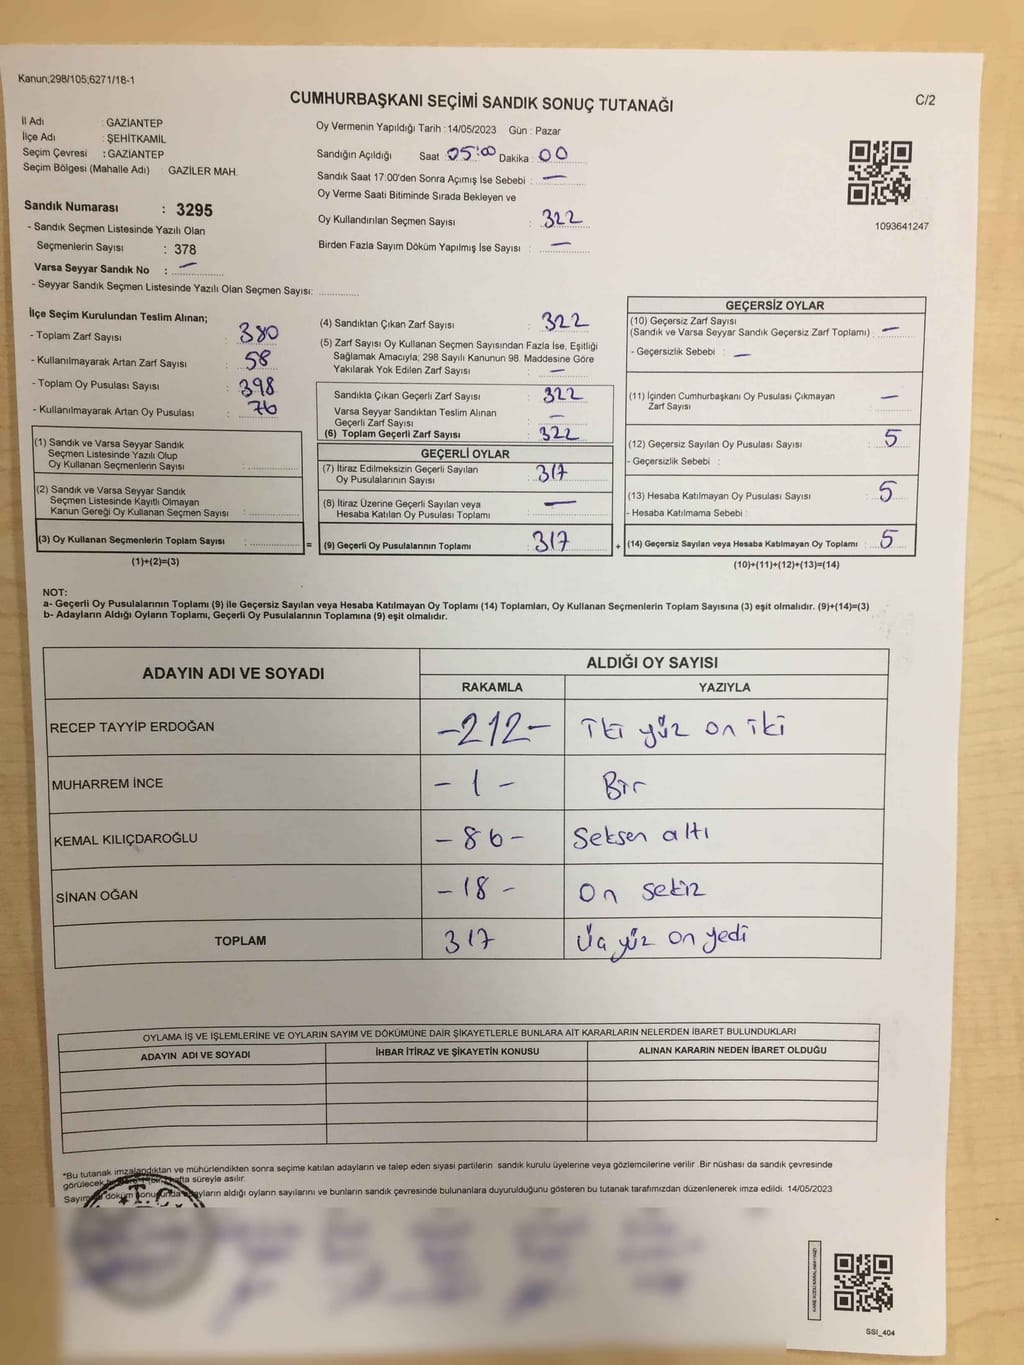 Kanun;298/105;6271/18-1
CUMHURBAŞKANI SEÇİMİ SANDIK SONUÇ TUTANAĞI
C/2
İl Adı : GAZİANTEP
İlçe Adı : ŞEHİTKAMİL
Seçim Çevresi : GAZİANTEP
Seçim Bölgesi (Mahalle Adı) : GAZİLER MAH.
Sandık Numarası : 3295
- Sandık Seçmen Listesinde Yazılı Olan
Seçmenlerin Sayısı : 378
Varsa Seyyar Sandık No : —
- Seyyar Sandık Seçmen Listesinde Yazılı Olan Seçmen Sayısı: ..............
Oy Vermenin Yapıldığı Tarih : 14/05/2023 Gün : Pazar
Sandığın Açıldığı Saat : 05:00 Dakika : 00
Sandık Saat 17:00'den Sonra Açımış İse Sebebi : —
Oy Verme Saati Bitiminde Sırada Bekleyen ve
Oy Kullandırılan Seçmen Sayısı : 322
Birden Fazla Sayım Döküm Yapılmış İse Sayısı : —
1093641247
İlçe Seçim Kurulundan Teslim Alınan;
- Toplam Zarf Sayısı : 380
- Kullanılmayarak Artan Zarf Sayısı : 58
- Toplam Oy Pusulası Sayısı : 398
- Kullanılmayarak Artan Oy Pusulası : 76
(1) Sandık ve Varsa Seyyar Sandık
Seçmen Listesinde Yazılı Olup
Oy Kullanan Seçmenlerin Sayısı : ..............
(2) Sandık ve Varsa Seyyar Sandık
Seçmen Listesinde Kayıtlı Olmayan
Kanun Gereği Oy Kullanan Seçmen Sayısı : ..............
(3) Oy Kullanan Seçmenlerin Toplam Sayısı : ..............
(1)+(2)=(3)
=
(4) Sandıktan Çıkan Zarf Sayısı : 322
(5) Zarf Sayısı Oy Kullanan Seçmen Sayısından Fazla İse, Eşitliği
Sağlamak Amacıyla; 298 Sayılı Kanunun 98. Maddesine Göre
Yakılarak Yok Edilen Zarf Sayısı : —
Sandıkta Çıkan Geçerli Zarf Sayısı : 322
Varsa Seyyar Sandıktan Teslim Alınan
Geçerli Zarf Sayısı : —
(6) Toplam Geçerli Zarf Sayısı : 322
GEÇERLİ OYLAR
(7) İtiraz Edilmeksizin Geçerli Sayılan
Oy Pusulalarının Sayısı : 317
(8) İtiraz Üzerine Geçerli Sayılan veya
Hesaba Katılan Oy Pusulası Toplamı : —
(9) Geçerli Oy Pusulalarının Toplamı : 317
+
GEÇERSİZ OYLAR
(10) Geçersiz Zarf Sayısı
(Sandık ve Varsa Seyyar Sandık Geçersiz Zarf Toplamı) : —
- Geçersizlik Sebebi : —
(11) İçinden Cumhurbaşkanı Oy Pusulası Çıkmayan
Zarf Sayısı : —
(12) Geçersiz Sayılan Oy Pusulası Sayısı : 5
- Geçersizlik Sebebi :
(13) Hesaba Katılmayan Oy Pusulası Sayısı : 5
- Hesaba Katılmama Sebebi :
(14) Geçersiz Sayılan veya Hesaba Katılmayan Oy Toplamı : 5
(10)+(11)+(12)+(13)=(14)
NOT:
a- Geçerli Oy Pusulalarının Toplamı (9) ile Geçersiz Sayılan veya Hesaba Katılmayan Oy Toplamı (14) Toplamları, Oy Kullanan Seçmenlerin Toplam Sayısına (3) eşit olmalıdır. (9)+(14)=(3)
b- Adayların Aldığı Oyların Toplamı, Geçerli Oy Pusulalarının Toplamına (9) eşit olmalıdır.
ADAYIN ADI VE SOYADI
ALDIĞI OY SAYISI
RAKAMLA YAZIYLA
RECEP TAYYİP ERDOĞAN -212- İki yüz on iki
MUHARREM İNCE - 1 - Bir
KEMAL KILIÇDAROĞLU - 86 - Seksen altı
SİNAN OĞAN - 18 - On sekiz
TOPLAM 317 Üç yüz on yedi
OYLAMA İŞ VE İŞLEMLERİNE VE OYLARIN SAYIM VE DÖKÜMÜNE DAİR ŞİKAYETLERLE BUNLARA AİT KARARLARIN NELERDEN İBARET BULUNDUKLARI
ADAYIN ADI VE SOYADI İHBAR İTİRAZ VE ŞİKAYETİN KONUSU ALINAN KARARIN NEDEN İBARET OLDUĞU
*Bu tutanak imzalandıktan ve mühürlendikten sonra seçime katılan adayların ve talep eden siyasi partilerin sandık kurulu üyelerine veya gözlemcilerine verilir .Bir nüshası da sandık çevresinde
görülecek hafta süreyle asılır.
Sayım döküm sonucunda adayların aldığı oyların sayılarını ve bunların sandık çevresinde bulunanlara duyurulduğunu gösteren bu tutanak tarafımızdan düzenlenerek imza edildi. 14/05/2023
T.C.
SSI_404